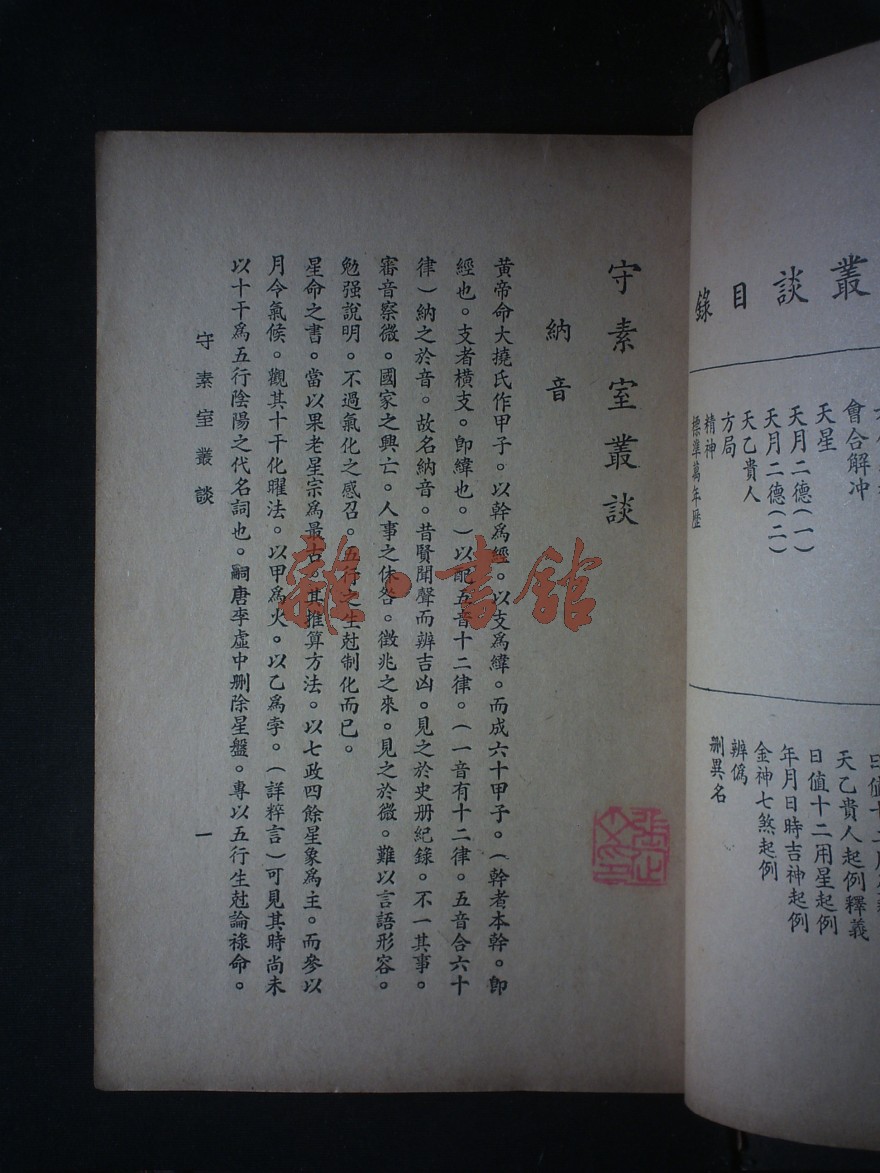 叢談目錄
會合解冲
天星
天月二德（一）
天月二德（二）
天乙貴人
方局
精神
標準萬年歷
天乙貴人起例釋義
日值十二用星起例
年月日時吉神起例
金神七煞起例
辨僞
刪異名
守素室叢談
納音
黃帝命大撓氏作甲子。以幹爲經。以支爲緯。而成六十甲子。（幹者本幹。卽
經也。支者橫支。卽緯也。）以配五音十二律。（一音有十二律。五音合六十
律）納之於音。故名納音。昔賢聞聲而辨吉凶。見之於史册紀錄。不一其事。
審音察微。國家之興亡。人事之休咎。徵兆之來。見之於微。難以言語形容。
勉强說明。不過氣化之感召。五行之生尅制化而已。
星命之書。當以果老星宗爲最古。其推算方法。以七政四餘星象爲主。而參以
月令氣候。觀其十干化曜法。以甲爲火。以乙爲孛。（詳粹言）可見其時尚未
以十干爲五行陰陽之代名詞也。嗣唐李虛中刪除星盤。專以五行生尅論祿命。
守素室叢談
一
雜·書館